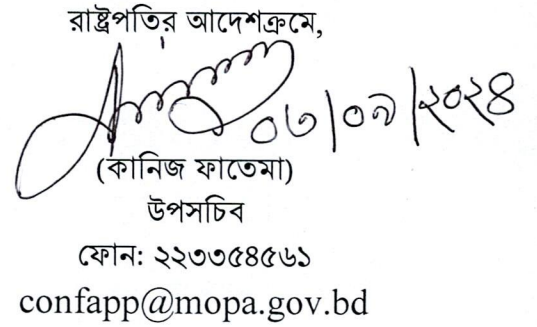 রাষ্ট্রপতির আদেশক্রমে,
০৩/০৯/২০২৪
(কানিজ ফাতেমা)
উপসচিব
ফোন: ২২৩৩৫৪৫৬১
confapp@mopa.gov.bd